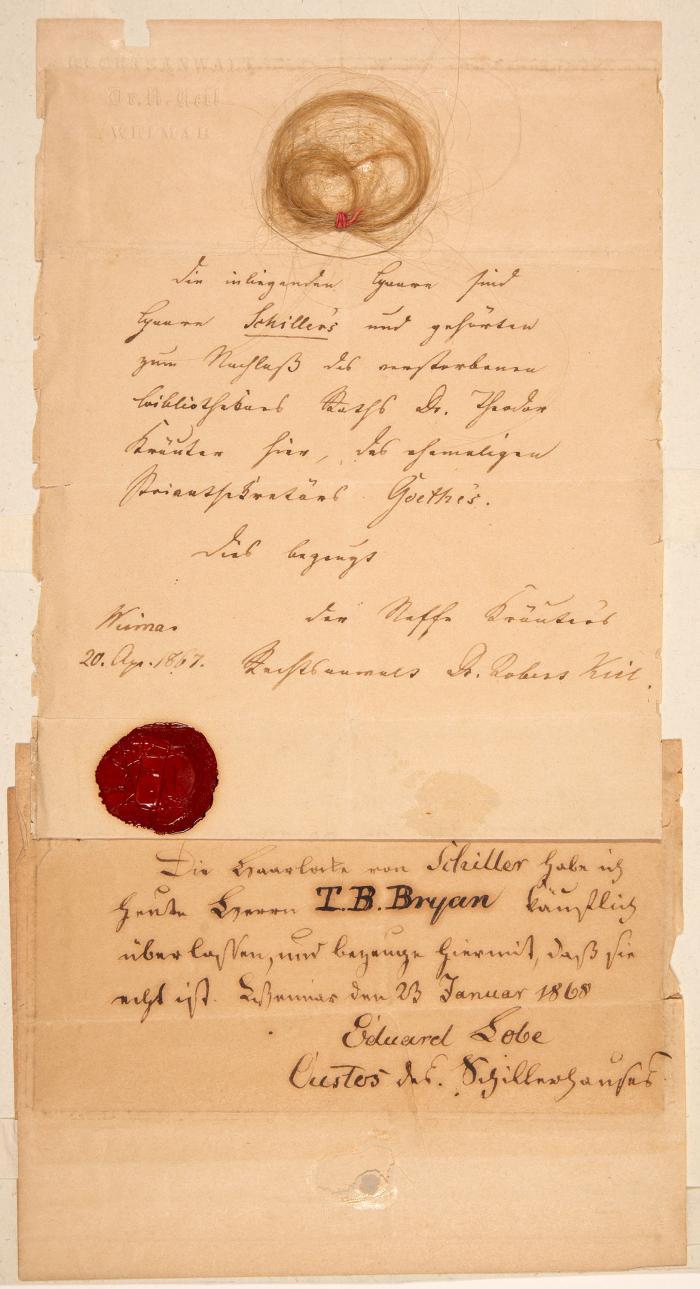 RECHTSANWALT
Dr. R. Keil
WEIMAR
Die inliegenden Haare sind
Haare Schiller's und gehörten
zum Nachlaß des verstorbenen
Bibliothekars Raths Dr. Theodor
Kräuter hier, des ehemaligen
Privatsekretärs Goethe's.
Dies bezeugt
Weimar der Neffe Kräuter's
20. Apr. 1867. Rechtsanwalt Dr. Robert Keil.
Die Haarlocke von Schiller habe ich
heute Herrn T. B. Bryan käuflich
überlassen, und bezeuge hiermit, daß sie
echt ist. Weimar den 23 Januar 1868
Eduard Lobe
Custos des. Schillerhauses